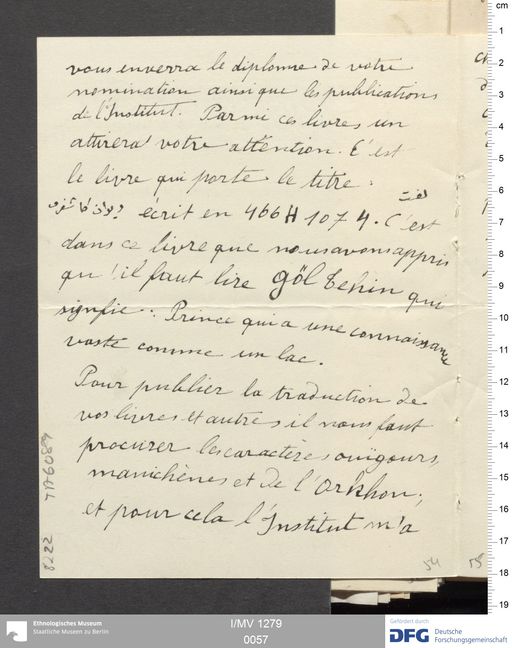 vous enverra le diplome de votre
nomination ainsi que les publications
de l'Institut. Parmi ces livres, un
attirera votre attention. C'est
le livre qui porte le titre:
لغت
ديوان écrit en 466 H 1074. C'est
dans ce livre que nous avons appris
qu'il faut lire göl tekin qui
signfie: Prince qui a une connaissance
vaste comme un lac.
Pour publier la traduction de
vos livres et autres il nous faut
procurer les caractères ouïgours,
manichènes et de l'Orkhon;
et pour cela l'Institut m'a
8222
TA 6089
54
55
cm
1
2
3
4
5
6
7
8
9
10
11
12
13
14
15
16
17
18
19
Ethnologisches Museum
Staatliche Museen zu Berlin
I/MV 1279
0057
Gefördert durch
DFG Deutsche
Forschungsgemeinschaft